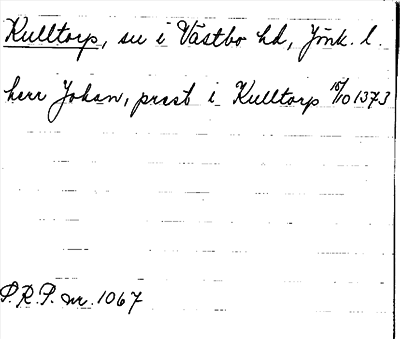 Kulltorp, sn i Västbo hd, Jönk. l.
herr Johan, präst i Kulltorp 15/10 1373
P.R.P. nr. 1067